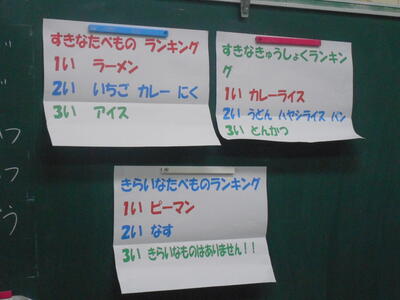 すきなたべもの ランキング
1い ラーメン
2い いちご カレー にく
3い アイス
すきなきゅうしょくランキン
グ
1い カレーライス
2い うどん ハヤシライス パン
3い とんかつ
きらいなたべものランキング
1い ピーマン
2い なす
3い きらいなものはありません！！